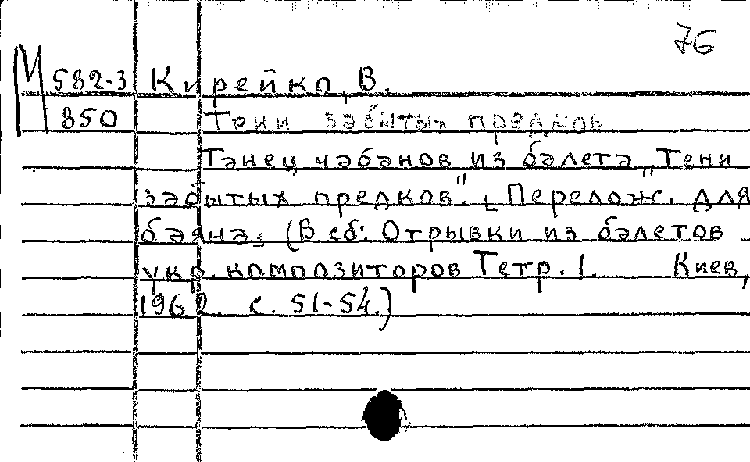 76
М 582-3 Кирейко, В.
850 Тени забытых предков
Танец чабанов из балета „Тени
забытых предков". [Перелож. для
баяна. (В сб: Отрывки из балетов
укр. композиторов Тетр. 1. Киев,
1962. с. 51-54.)